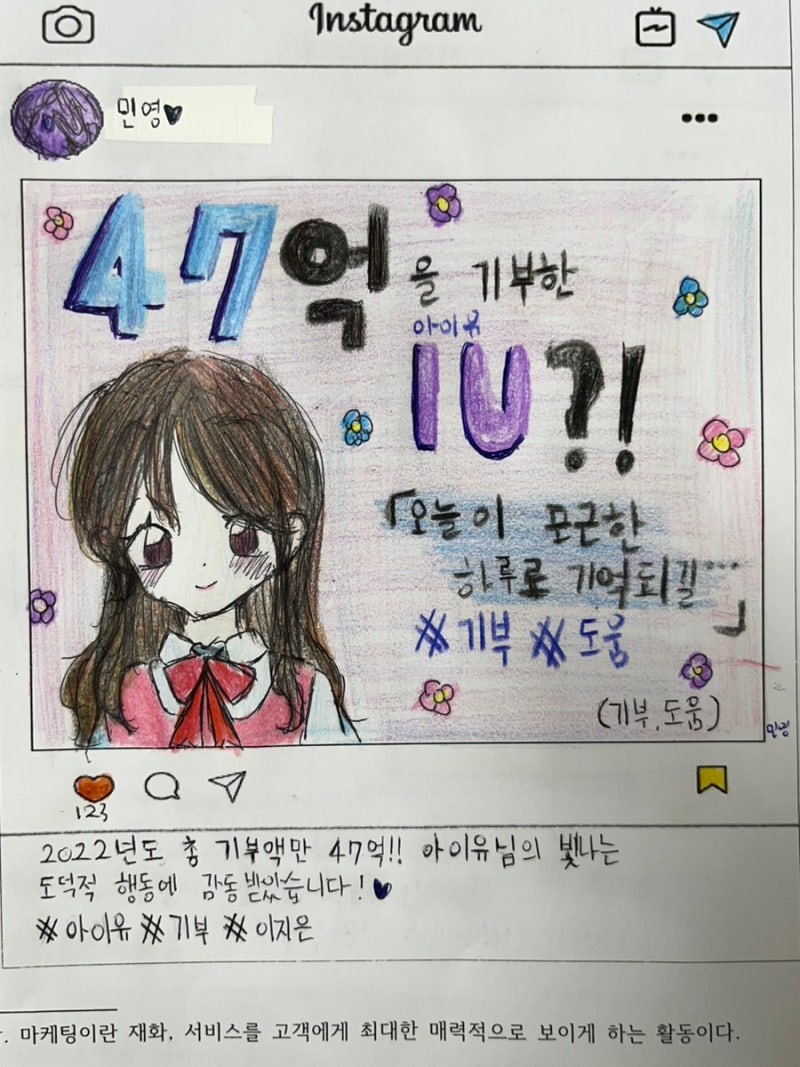 Instagram
민영♥
47억을 기부한
아이유
IU?!
「오늘이 포근한
하루로 기억되길…」
#기부 #도움
(기부, 도움)
민영
123
2022년도 총 기부액만 47억!! 아이유님의 빛나는
도덕적 행동에 감동받았습니다!♥
#아이유 #기부 #이지은
. 마케팅이란 재화, 서비스를 고객에게 최대한 매력적으로 보이게 하는 활동이다.